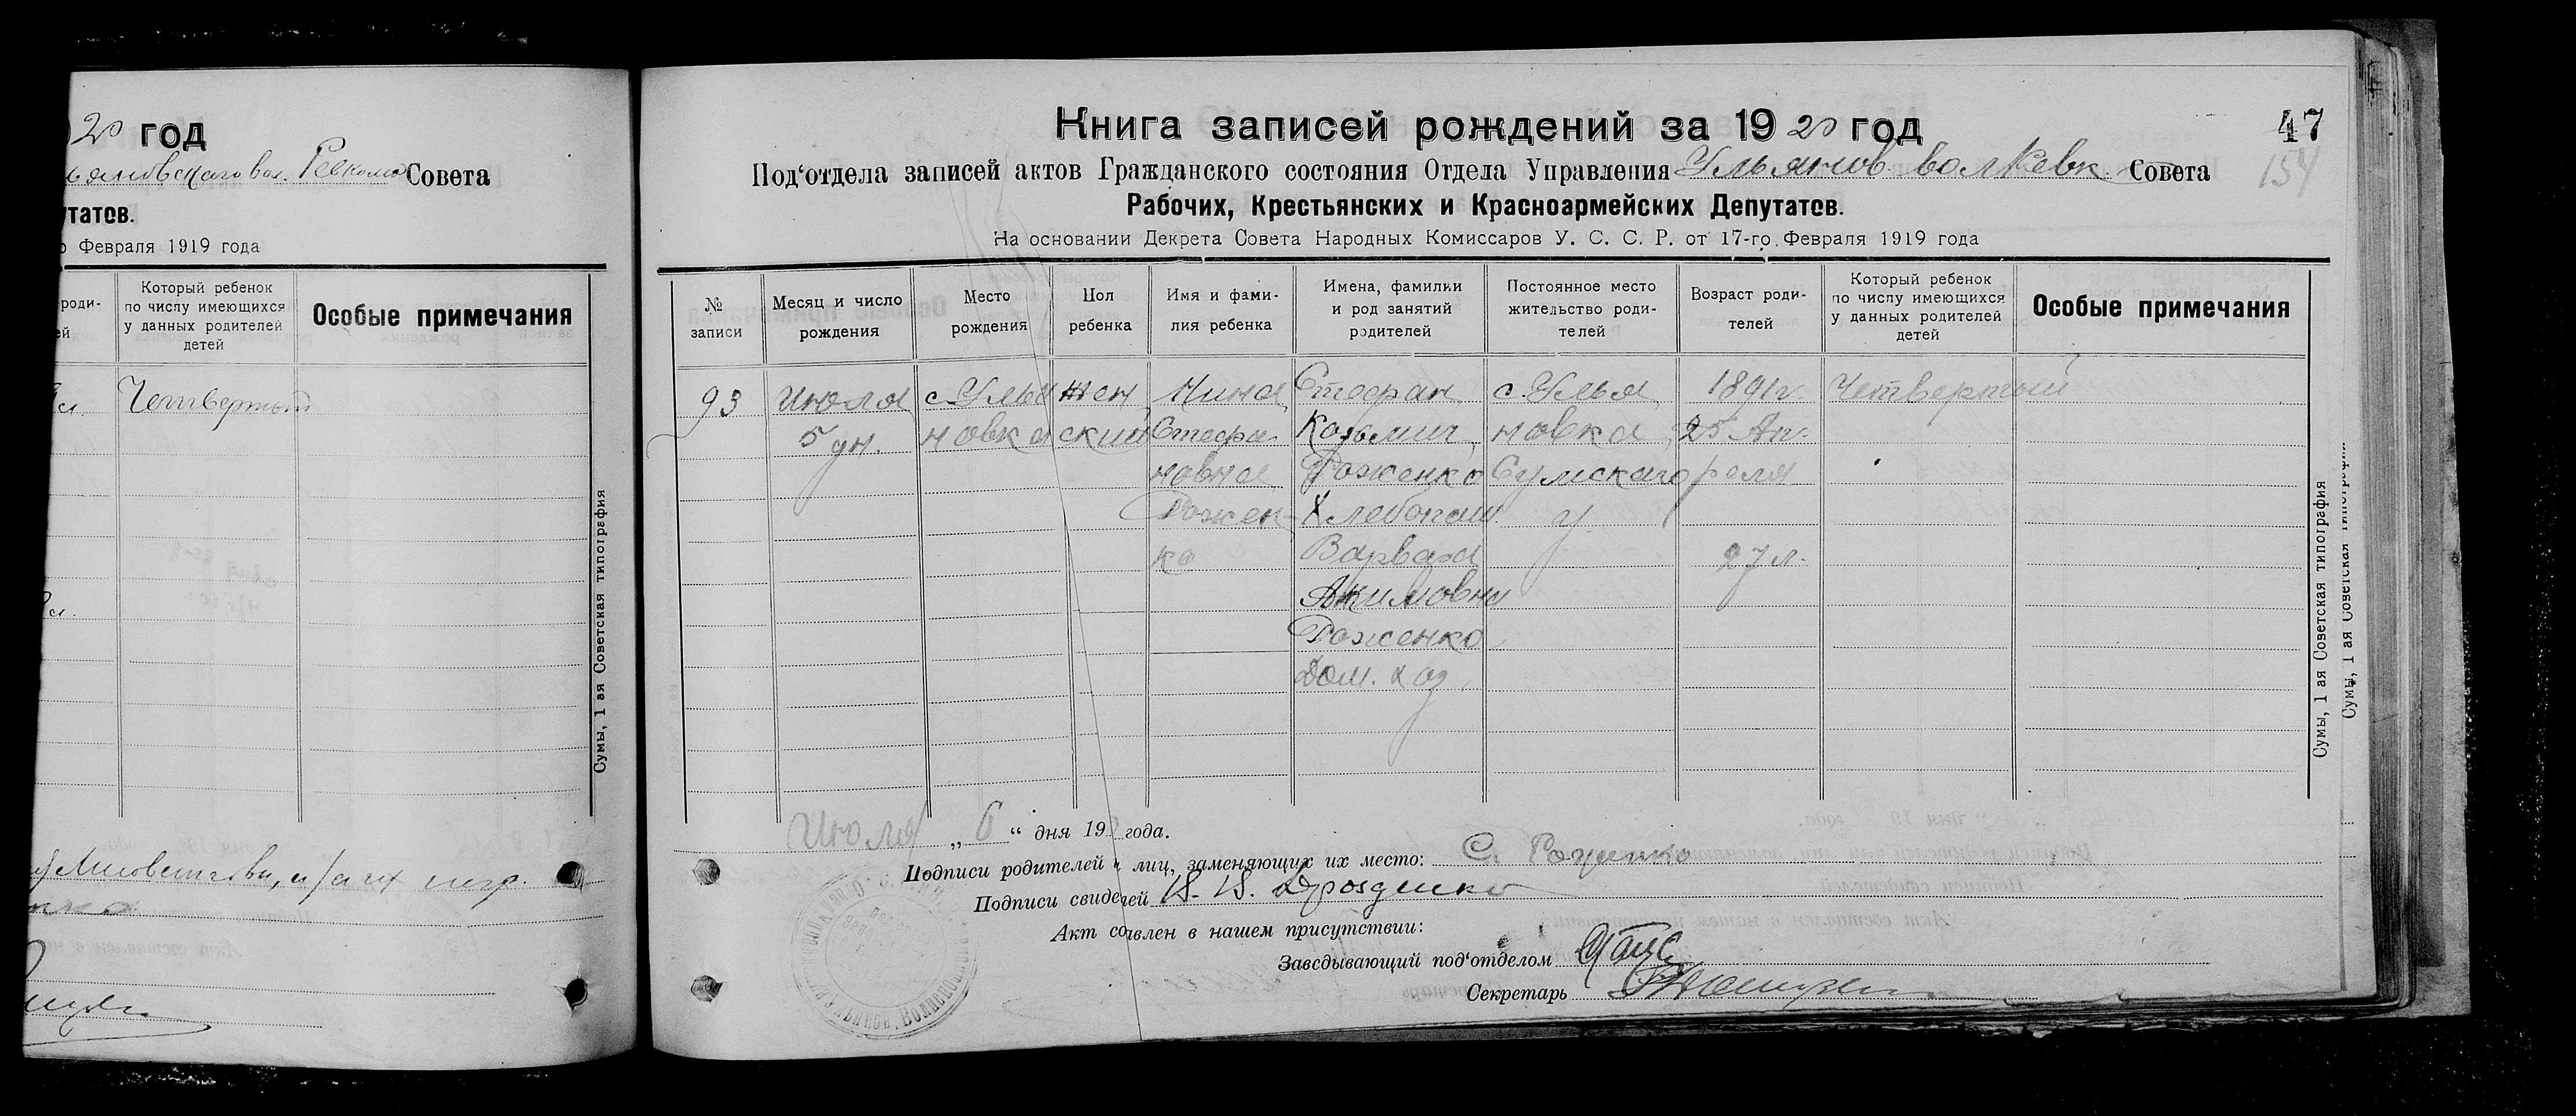 20 год
Совета
татов.
Февраля 1919 года
роди-
ей
Который ребенок
по числу имеющихся
у данных родителей
детей
Особые примечания
Четвертый
Сумы, 1 ая Советская типография
Книга записей рождений за 1920 год
47
154
Под‘отдела записей актов Гражданского состояния Отдела Управления Ульянов. волРевк. Совета
Рабочих, Крестьянских и Красноармейских Депутатов.
На основании Декрета Совета Народных Комиссаров У. С. С. Р. от 17-го Февраля 1919 года
№
записи
Месяц и число
рождения
Место
рождения
Пол
ребенка
Имя и фами-
лия ребенка
Имена, фамилии
и род занятий
родителей
Постоянное место
жительство роди-
телей
Возраст роди-
телей
Который ребенок
по числу имеющихся
у данных родителей
детей
Особые примечания
93
Июля
5 дн.
с. Улья
новка
жен
ский
Нина
Стефа
новна
Рожен-
ко
Стефан
Козьмич
Роженко
Хлебопаш.
Варвара
Акимовна
Роженко
Дом. хоз.
с. Улья
новка
Сумского
у
1891 г.
25 Ап-
реля
27 л.
Четвертый
Июля „ 6 “ дня 19 года.
Подписи родителей и лиц, заменяющих их место: С. Роженко
Подписи свиде елей Дрозденко
Акт со авлен в нашем присутствии:
Заведывающий под‘отделом
Секретарь
Сумы, 1 ая Советская типография
Сумы, 1 ая Советская типография